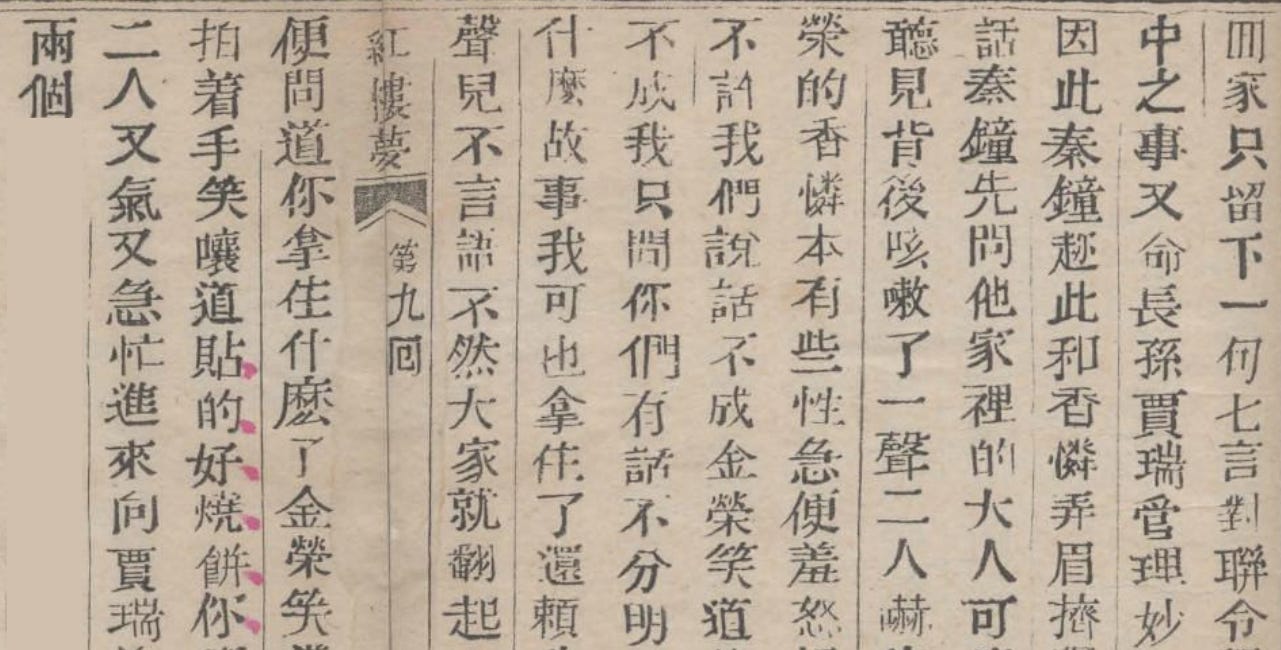 回家只留下一句七言對聯令
中之事又命長孫賈瑞管理妙
因此秦鐘趂此和香憐弄眉擠
話秦鐘先問他家裡的大人可
聽見背後咳嗽了一聲二人嚇
榮的香憐本有些性急便羞怒
不許我們說話不成金榮笑道
不成我只問你們有話不分明
什麼故事我可也拿住了還賴
聲兒不言語不然大家就翻起
紅樓夢 第九回
便問道你拿住什麽了金榮笑
拍着手笑嚷道貼的好燒餅你
二人又氣又急忙進來向賈瑞
兩個